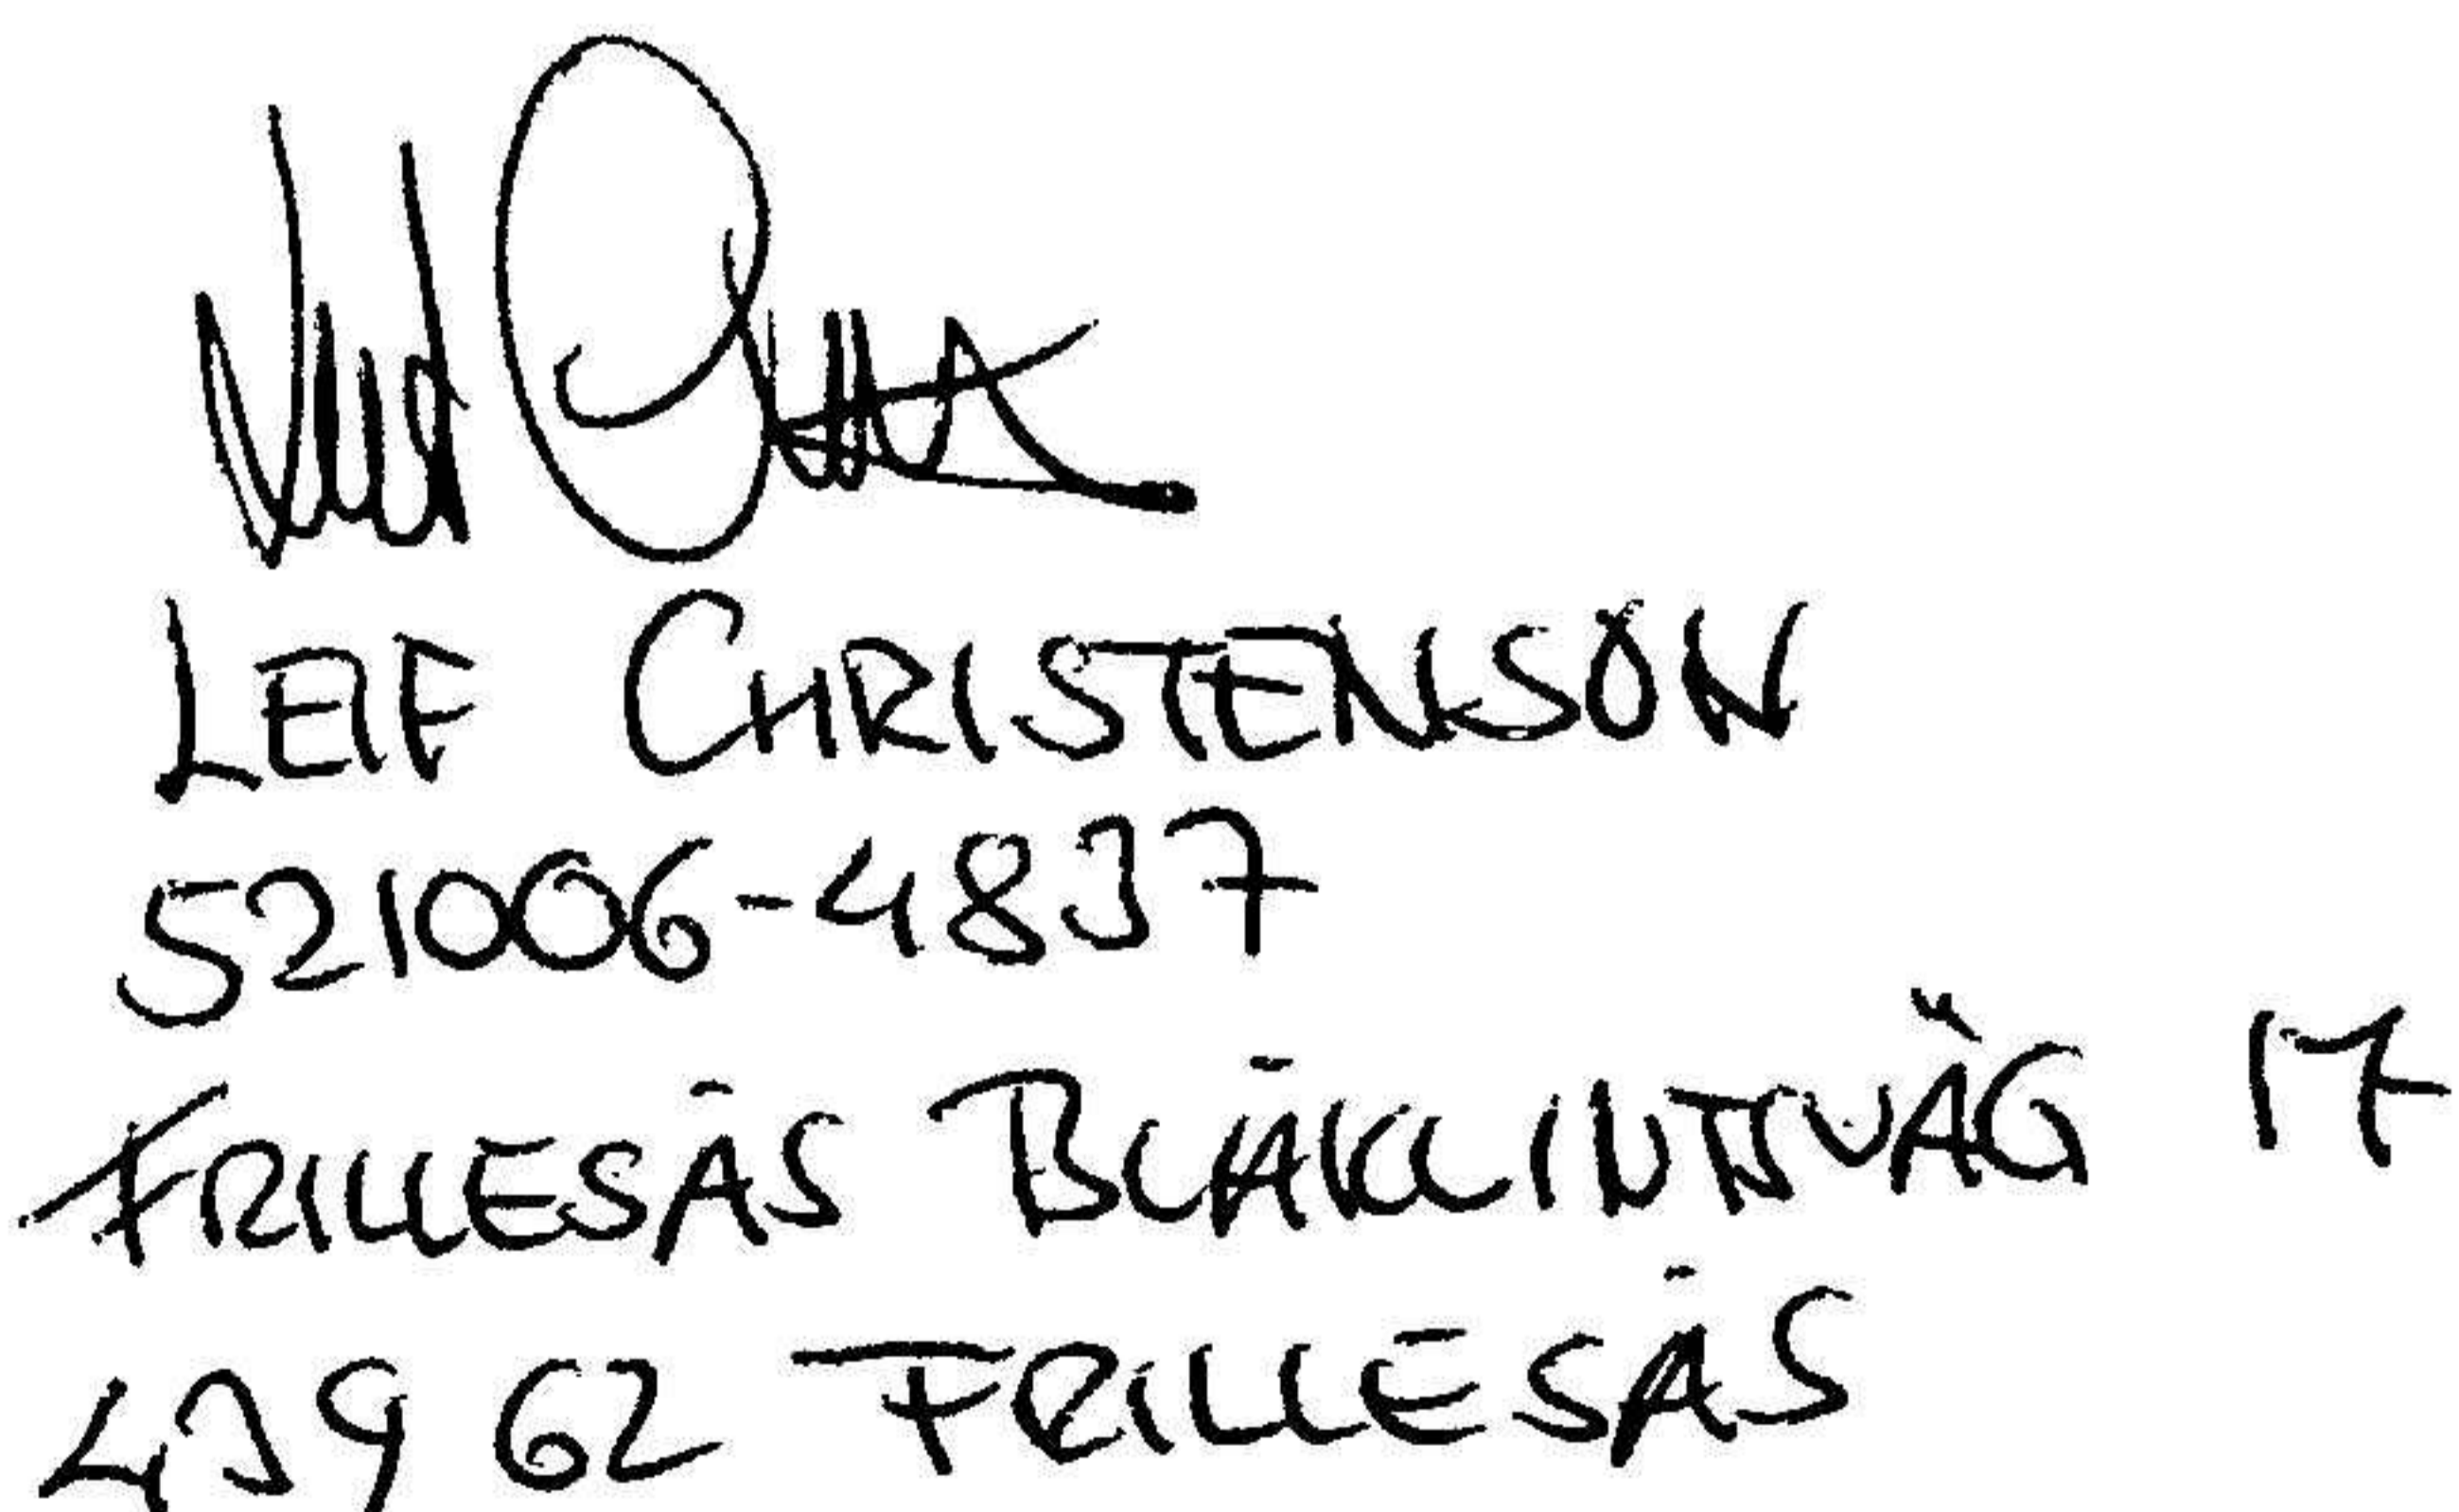 LEIF CHRISTENSON
521006-4837
FRILLESÅS BLÅKLINTSVÄG 17
439 62 FRILLESÅS